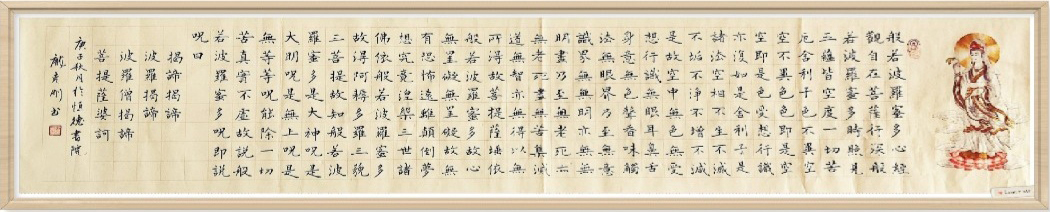 般若波羅蜜多心經
觀自在菩薩行深般
若波羅蜜多時照見
五蘊皆空度一切苦
厄舍利子色不異空
空不異色色即是空
空即是色受想行識
亦復如是舍利子是
諸法空相不生不滅
不垢不淨不增不減
是故空中無色無受
想行識無眼耳鼻舌
身意無色聲香味觸
法無眼界乃至無意
識界無無明亦無無
明盡乃至無老死亦
無老死盡無苦集滅
道無智亦無得以無
所得故菩提薩埵依
般若波羅蜜多故心
無罣礙無罣礙故無
有恐怖遠離顛倒夢
想究竟涅槃三世諸
佛依般若波羅蜜多
故得阿耨多羅三藐
三菩提故知般若波
羅蜜多是大神呪是
大明呪是無上呪是
無等等呪能除一切
苦真實不虛故說般
若波羅蜜多呪即說
呪曰
揭諦揭諦
波羅揭諦
波羅僧揭諦
菩提薩婆訶
庚子秋月於恒德書院